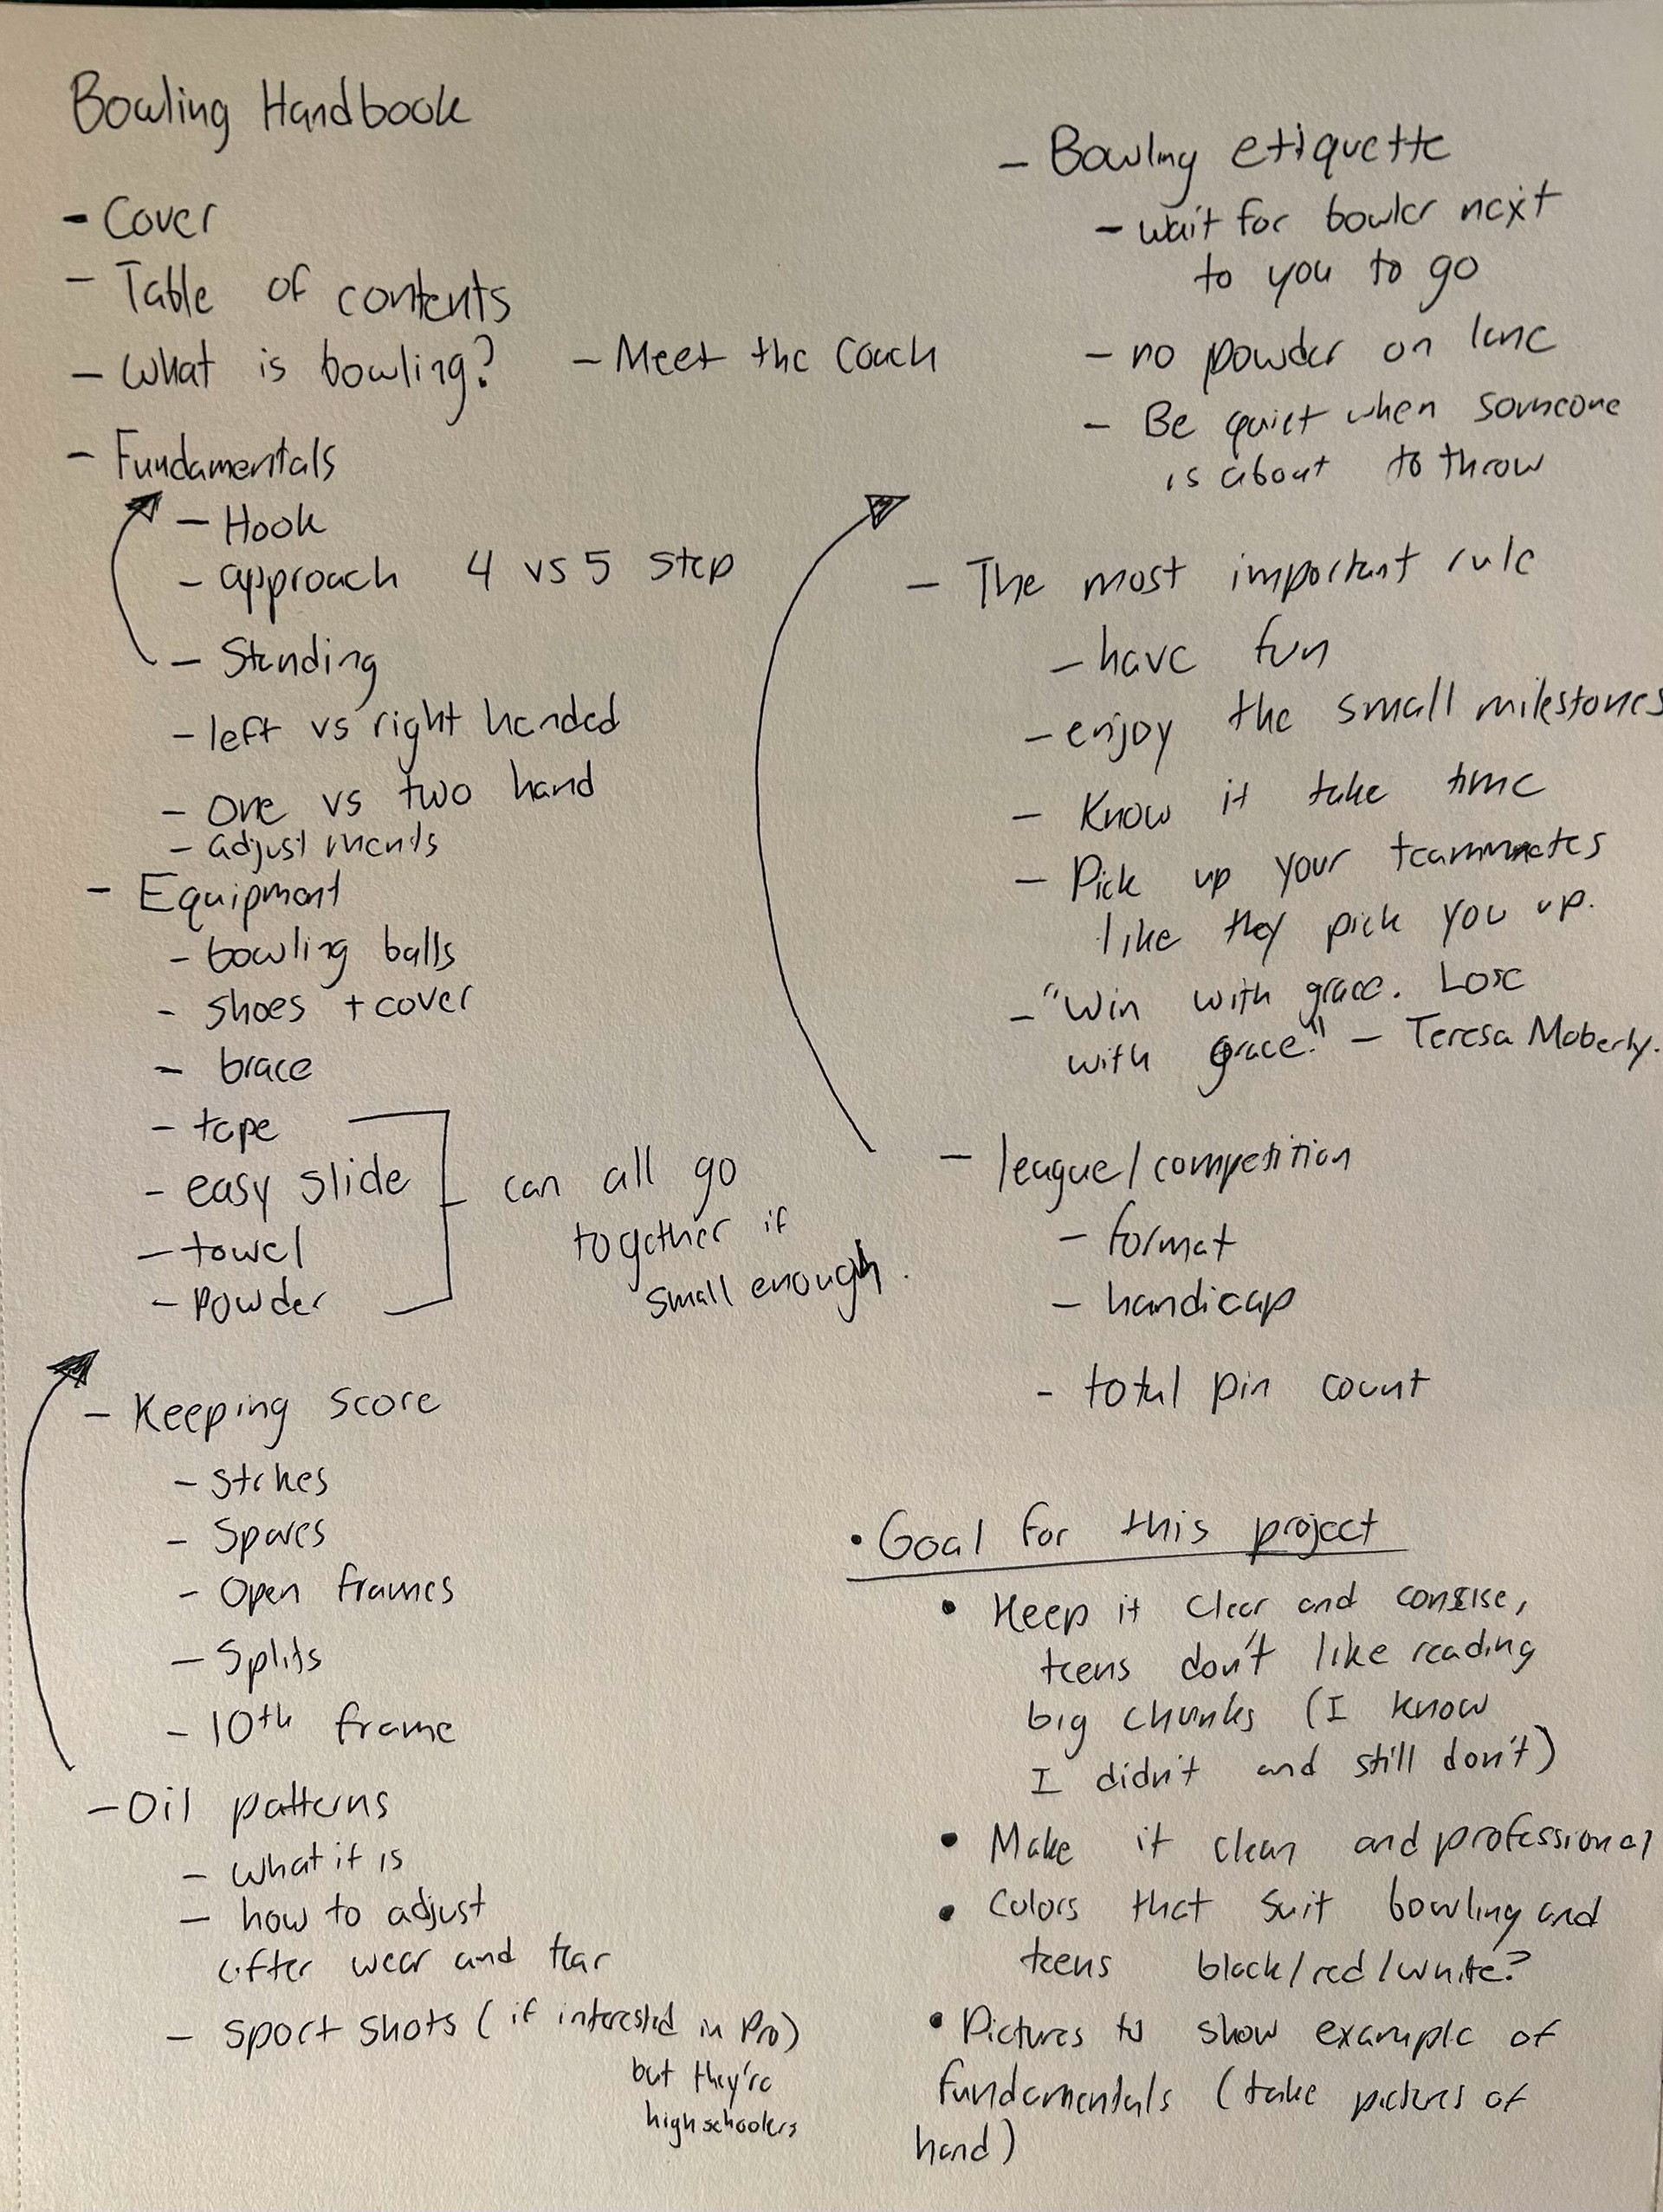 Bowling Handbook
- Cover
- Table of contents
- What is bowling? - Meet the Coach
- Fundamentals
- Hook
- approach 4 vs 5 step
- Standing
- left vs right handed
- one vs two hand
- adjustments
- Equipment
- bowling balls
- shoes + cover
- brace
- tape
- easy slide
- towel
- powder
can all go
together if
small enough.
- Keeping score
- Strikes
- Spares
- Open frames
- Splits
- 10th frame
- Oil patterns
- What it is
- how to adjust
after wear and tear
- sport shots (if interested in Pro)
but they're
highschoolers
- Bowling etiquette
- wait for bowler next
to you to go
- no powder on lane
- Be quiet when someone
is about to throw
- The most important rule
- have fun
- enjoy the small milestones
- Know it take time
- Pick up your teammates
like they pick you up.
- "Win with grace. Lose
with grace." - Teresa Moberly.
- league/competition
- format
- handicap
- total pin count
• Goal for this project
• Keep it clear and consise,
teens don't like reading
big chunks (I know
I didn't and still don't)
• Make it clean and professional
• Colors that suit bowling and
teens black/red/white?
• Pictures to show example of
fundamentals (take pictures of
hand)